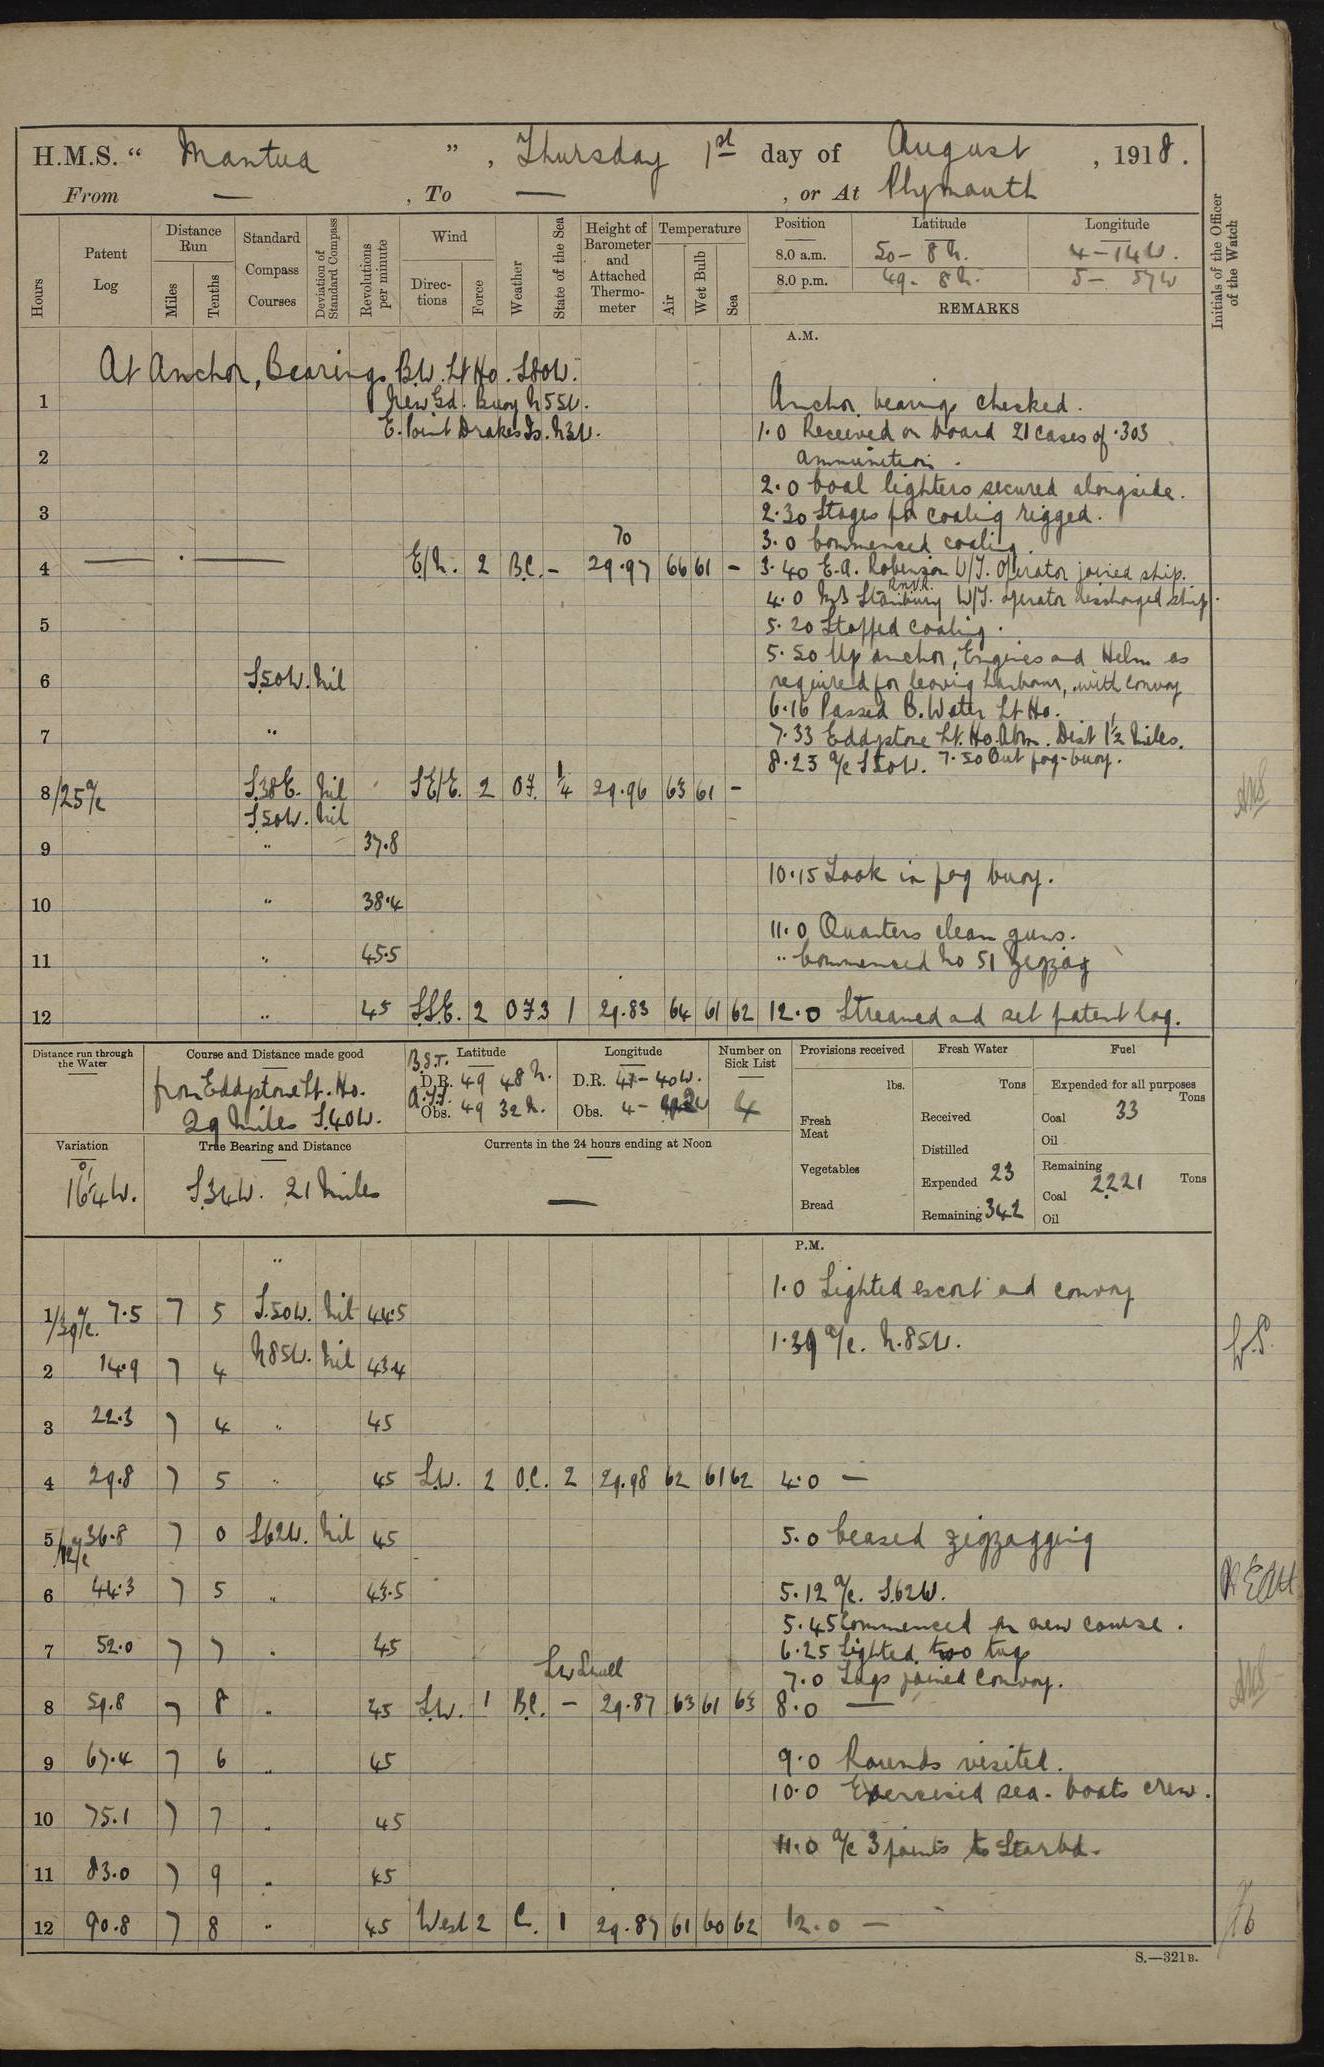 H.M.S. “ Mantua ” , Thursday 1st day of August , 1918.
From — , To — , or At Plymouth
Hours
Patent Log
Distance Run
Miles
Tenths
Standard Compass Courses
Deviation of Standard Compass
Revolutions per minute
Wind
Directions
Force
Weather
State of the Sea
Height of Barometer and Attached Thermometer
Temperature
Air
Wet Bulb
Sea
Position Latitude Longitude
8.0 a.m. 50 – 8 N. 4 – 14 W.
8.0 p.m. 49 – 8 N. 5 – 57 W
REMARKS
Initials of the Officer of the Watch
A.M.
At Anchor, Bearings B.W. Lt Ho. S80W.
New Gd. Buoy N55W.
E. Point Drakes Is. N3W.
1 Anchor bearings checked.
1.0 Received on board 21 cases of .303
2 ammunition.
2.0 Coal lighters secured alongside.
3 2.30 Stages for coaling rigged.
3.0 Commenced coaling.
70
4 — . — E/N. 2 B.C. – 29.97 66 61 – 3.40 E.A. Robinson W/T. Operator joined ship.
R.N.V.R.
4.0 Stanbury W/T. operator discharged ship.
5 5.20 Stopped coaling.
5.50 Up anchor, Engines and Helm as
6 S.50W. Nil required for leaving harbour, with convoy
6.16 Passed B. Water Lt Ho.
7 " 7.33 Eddystone Lt. Ho. Abm. Dist 1½ Miles.
8.25 a/c S50W. 7.50 Out fog-buoy.
8/25 a/c S.38E. Nil SE/E. 2 O.F. ¼ 29.96 63 61 –
S.50W. Nil
9 " 37.8
10.15 Took in fog buoy.
10 " 38.4
11.0 Quarters clean guns.
11 " 45.5 " Commenced No 51 Zigzag
12 " 45 S.S.E. 2 OF3 1 29.83 64 61 62 12.0 Streamed and set patent log.
Distance run through the Water
Course and Distance made good
from Eddystone Lt. Ho.
29 Miles S.40W.
B.S.T. Latitude
D.R. 49 48 N.
A.T.S. Obs. 49 32 N.
Longitude
D.R. 4 – 40 W.
Obs. 4 –
Number on Sick List
4
Provisions received
lbs.
Fresh Meat
Vegetables
Bread
Fresh Water
Tons
Received
Distilled
Expended 23
Remaining 342
Fuel
Expended for all purposes
Tons
Coal 33
Oil
Remaining
Coal 2221 Tons
Oil
Variation
16°4W.
True Bearing and Distance
S.34W. 21 Miles
Currents in the 24 hours ending at Noon
—
P.M.
"
1.0 Sighted escort and convoy
1/39 a/c. 7.5 7 5 S.50W. Nil 44.5
1.39 a/c. N.85W.
2 14.9 7 4 N85W. Nil 43.4
3 22.3 7 4 " 45
4 29.8 7 5 " 45 S.W. 2 O.C. 2 29.98 62 61 62 4.0 —
5/12 a/c 36.8 7 0 S62W. Nil 45 5.0 Ceased zigzagging
6 44.3 7 5 " 43.5 5.12 a/c. S.62W.
5.45 Commenced on new course.
7 52.0 7 7 " 45 6.25 Sighted two tugs
SW Swell 7.0 Tugs joined Convoy.
8 59.8 7 8 " 45 S.W. 1 B.C. – 29.87 63 61 63 8.0 —
9 67.4 7 6 " 45 9.0 Rounds visited.
10.0 Exercised sea-boats crew.
10 75.1 7 7 " 45
11.0 a/c 3 points to Starbd.
11 83.0 7 9 " 45
12 90.8 7 8 " 45 West 2 C. 1 29.87 61 60 62 12.0 —
S.—321B.